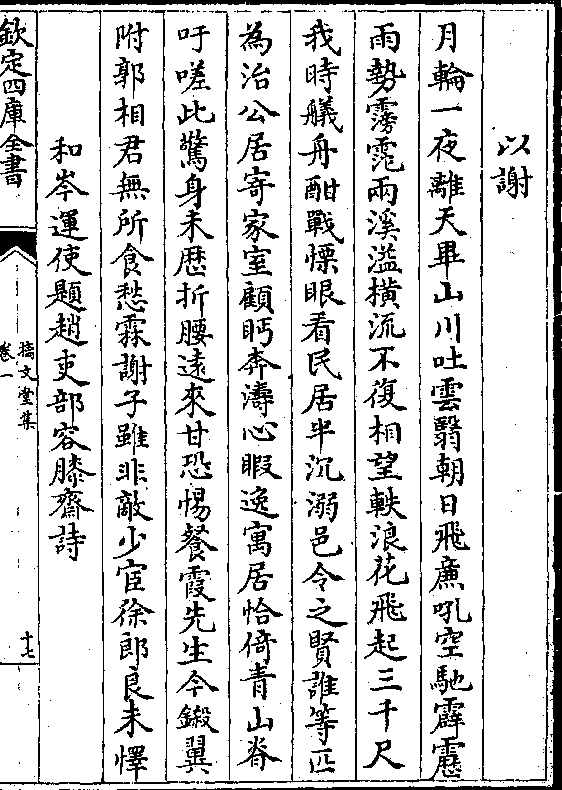 以謝
月輪一夜離天畢山川吐雲翳朝日飛廉吼空馳霹靂
雨勢霶霑兩溪溢橫流不復相望軼浪花飛起三千尺
我時艤舟酣戰慄眼看民居半沉溺邑令之賢誰等匹
為治公居寄家室顧眄奔濤心暇逸寓居恰倚青山脊
吁嗟此驚身未歴折腰逺來甘恐惕餐霞先生今鎩翼
附郭相君無所食愁霖謝子雖非敵少宦徐郎良未懌
和岑運使題趙吏部容膝齋詩
欽定四庫全書
摛文堂集
卷一
十七